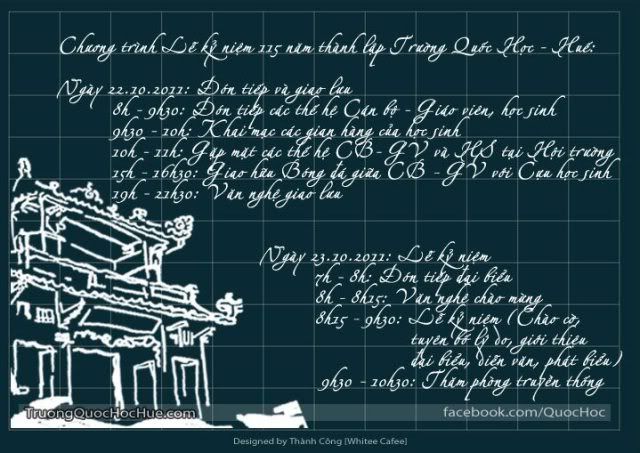 Chương trình Lễ kỷ niệm 115 năm thành lập Trường Quốc Học - Huế:
Ngày 22.10.2011: Đón tiếp và giao lưu
8h - 9h30: Đón tiếp các thế hệ Cán bộ - Giáo viên, học sinh
9h30 - 10h: Khai mạc các gian hàng của học sinh
10h - 11h: Gặp mặt các thế hệ CB - GV và HS tại Hội trường
15h - 16h30: Giao hữu Bóng đá giữa CB - GV với Cựu học sinh
19h - 21h30: Văn nghệ giao lưu
Ngày 23.10.2011: Lễ kỷ niệm
7h - 8h: Đón tiếp đại biểu
8h - 8h15: Văn nghệ chào mừng
8h15 - 9h30: Lễ kỷ niệm (Chào cờ,
tuyên bố lý do, giới thiệu
đại biểu, diễn văn, phát biểu)
9h30 - 10h30: Thăm phòng truyền thống
TruongQuocHocHue.com
facebook.com/QuocHoc
Designed by Thành Công [Whitee Cafee]